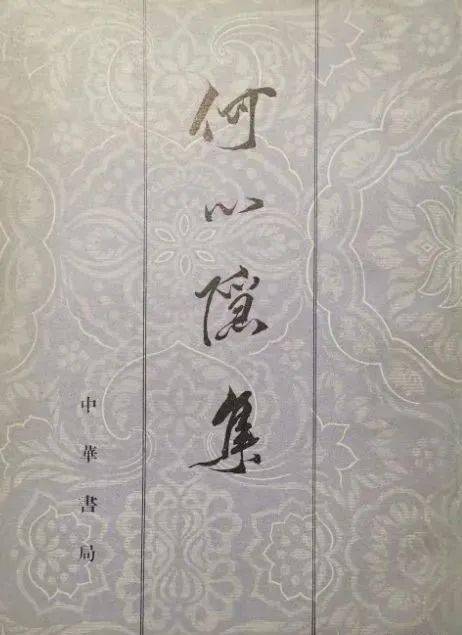 何心隱集
中華書局